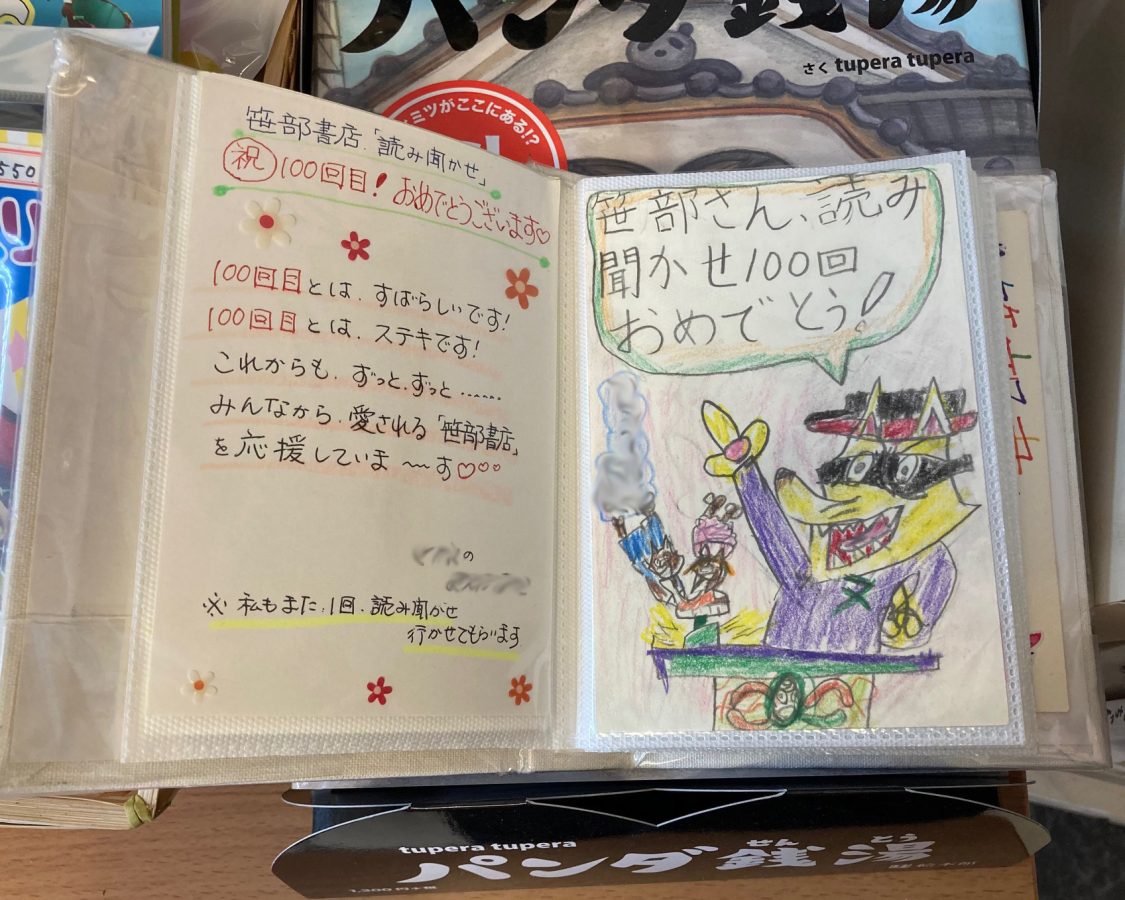 パンダ銭湯
さく tupera tupera
ミツがここにある!?
550
笹部書店.「読み聞かせ」
祝 100回目! おめでとうございます♡
100回目とは、すばらしいです!
100回目とは、ステキです!
これからも、ずっと、ずっと……
みんなから、愛される「笹部書店」
を応援していま〜す♡♡♡
の
※ 私もまた、1回、読み聞かせ
行かせてもらいます
笹部さん、読み
聞かせ100回
おめでとう!
tupera tupera
パンダ銭湯
せん とう
1,300円+税